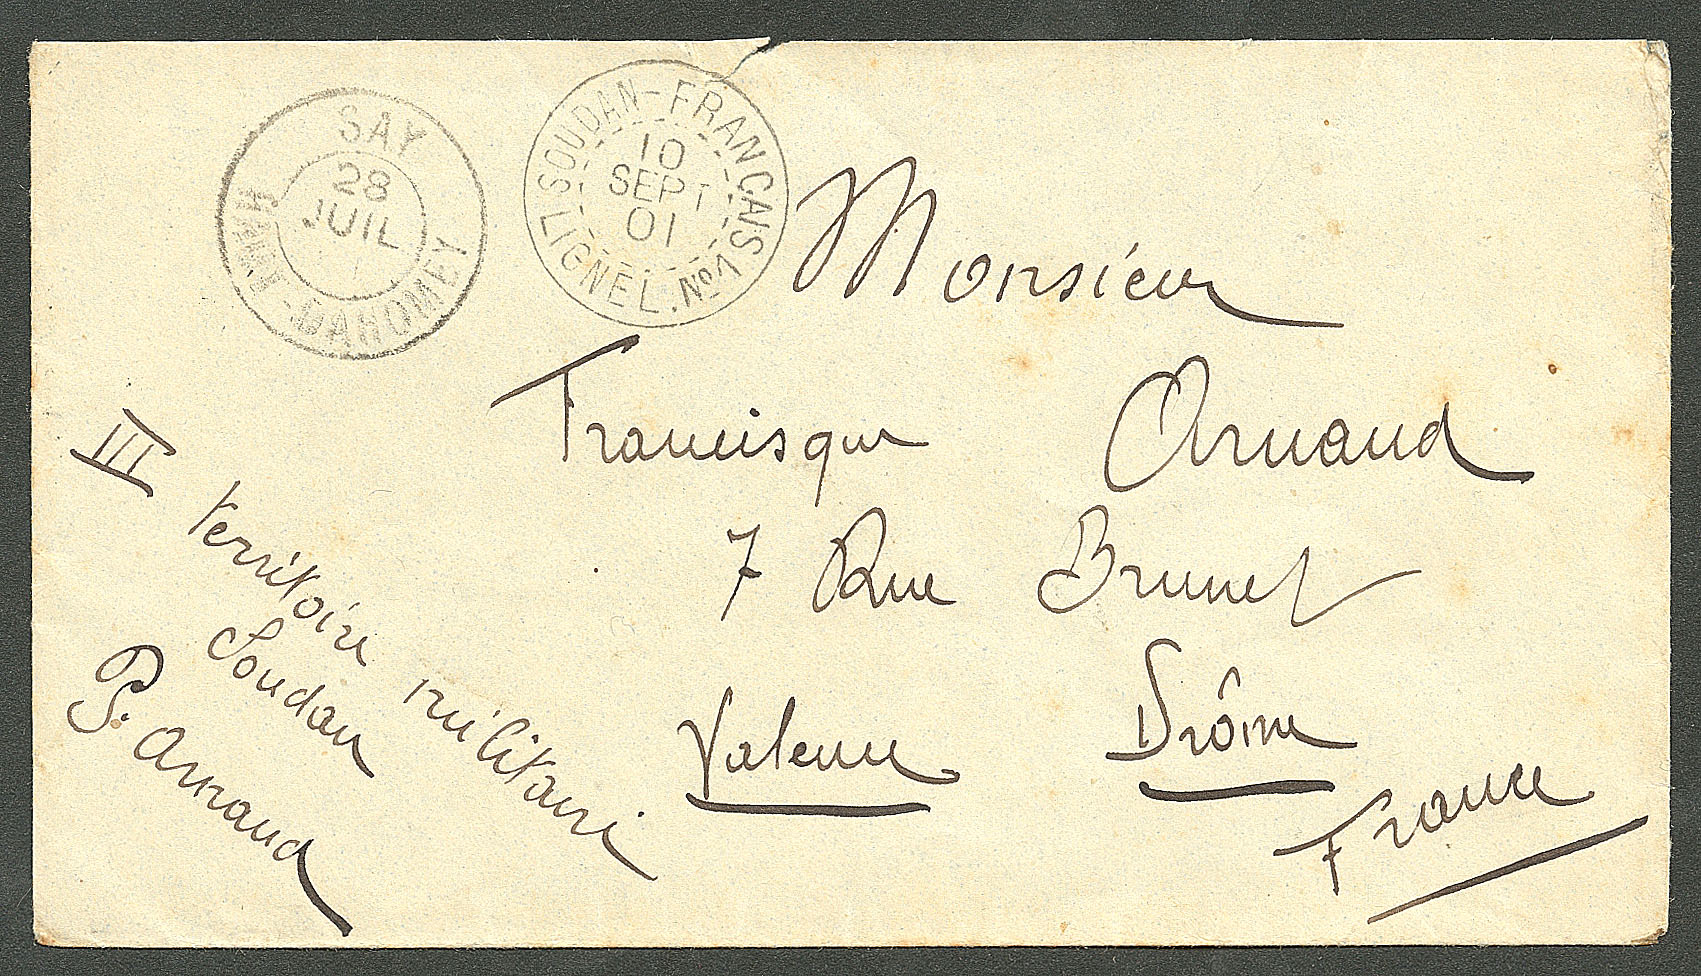 SAY
28
JUIL
HAUT-DAHOMEY
SOUDAN-FRANÇAIS
10
SEPT
01
LIGNE L. No 1
Monsieur
Francisque Arnaud
7 Rue Brunet
Valence Drôme
France
III territoire militaire
Soudan
P. Arnaud